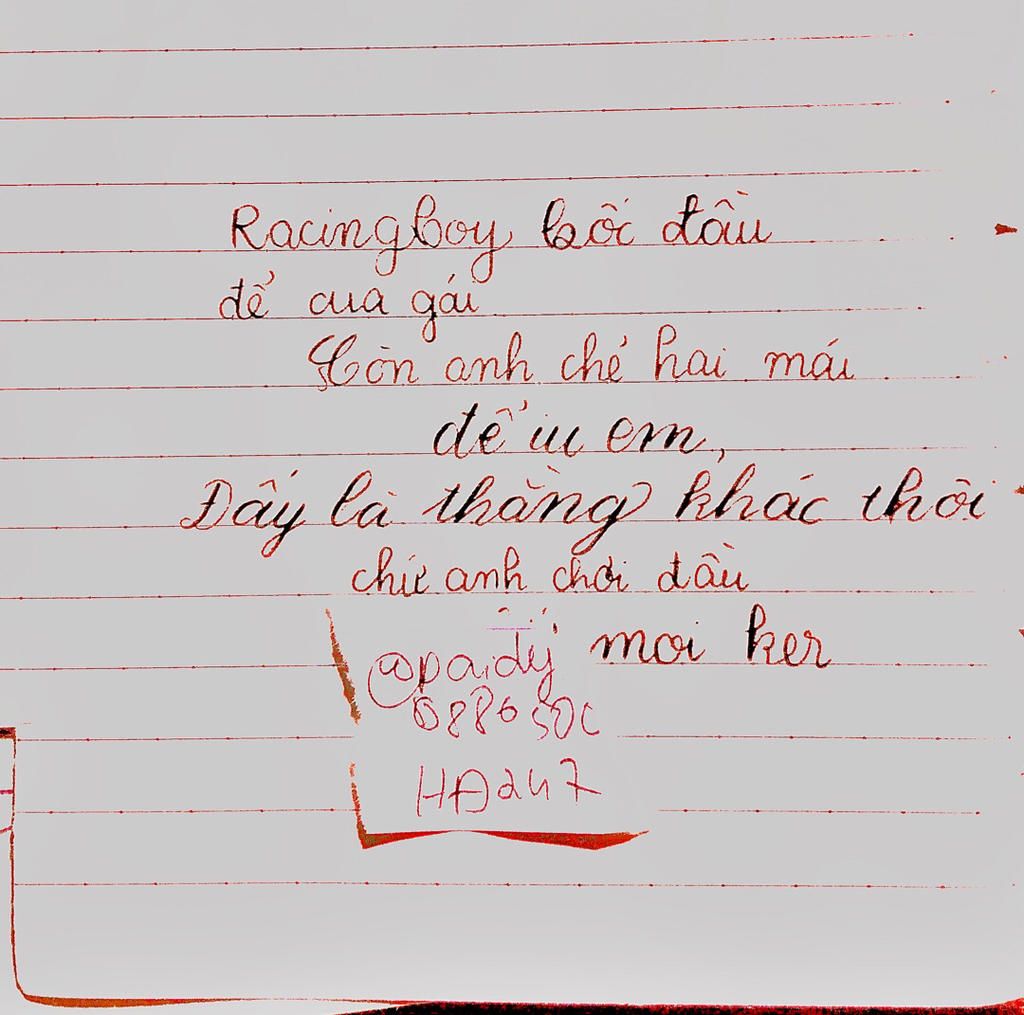 Racingboy bốc đầu
để cua gái
Còn anh chẻ hai mái
để iu em,
Đấy là thằng khác thôi
chứ anh chơi đầu
moi ker
@paidý
HA247